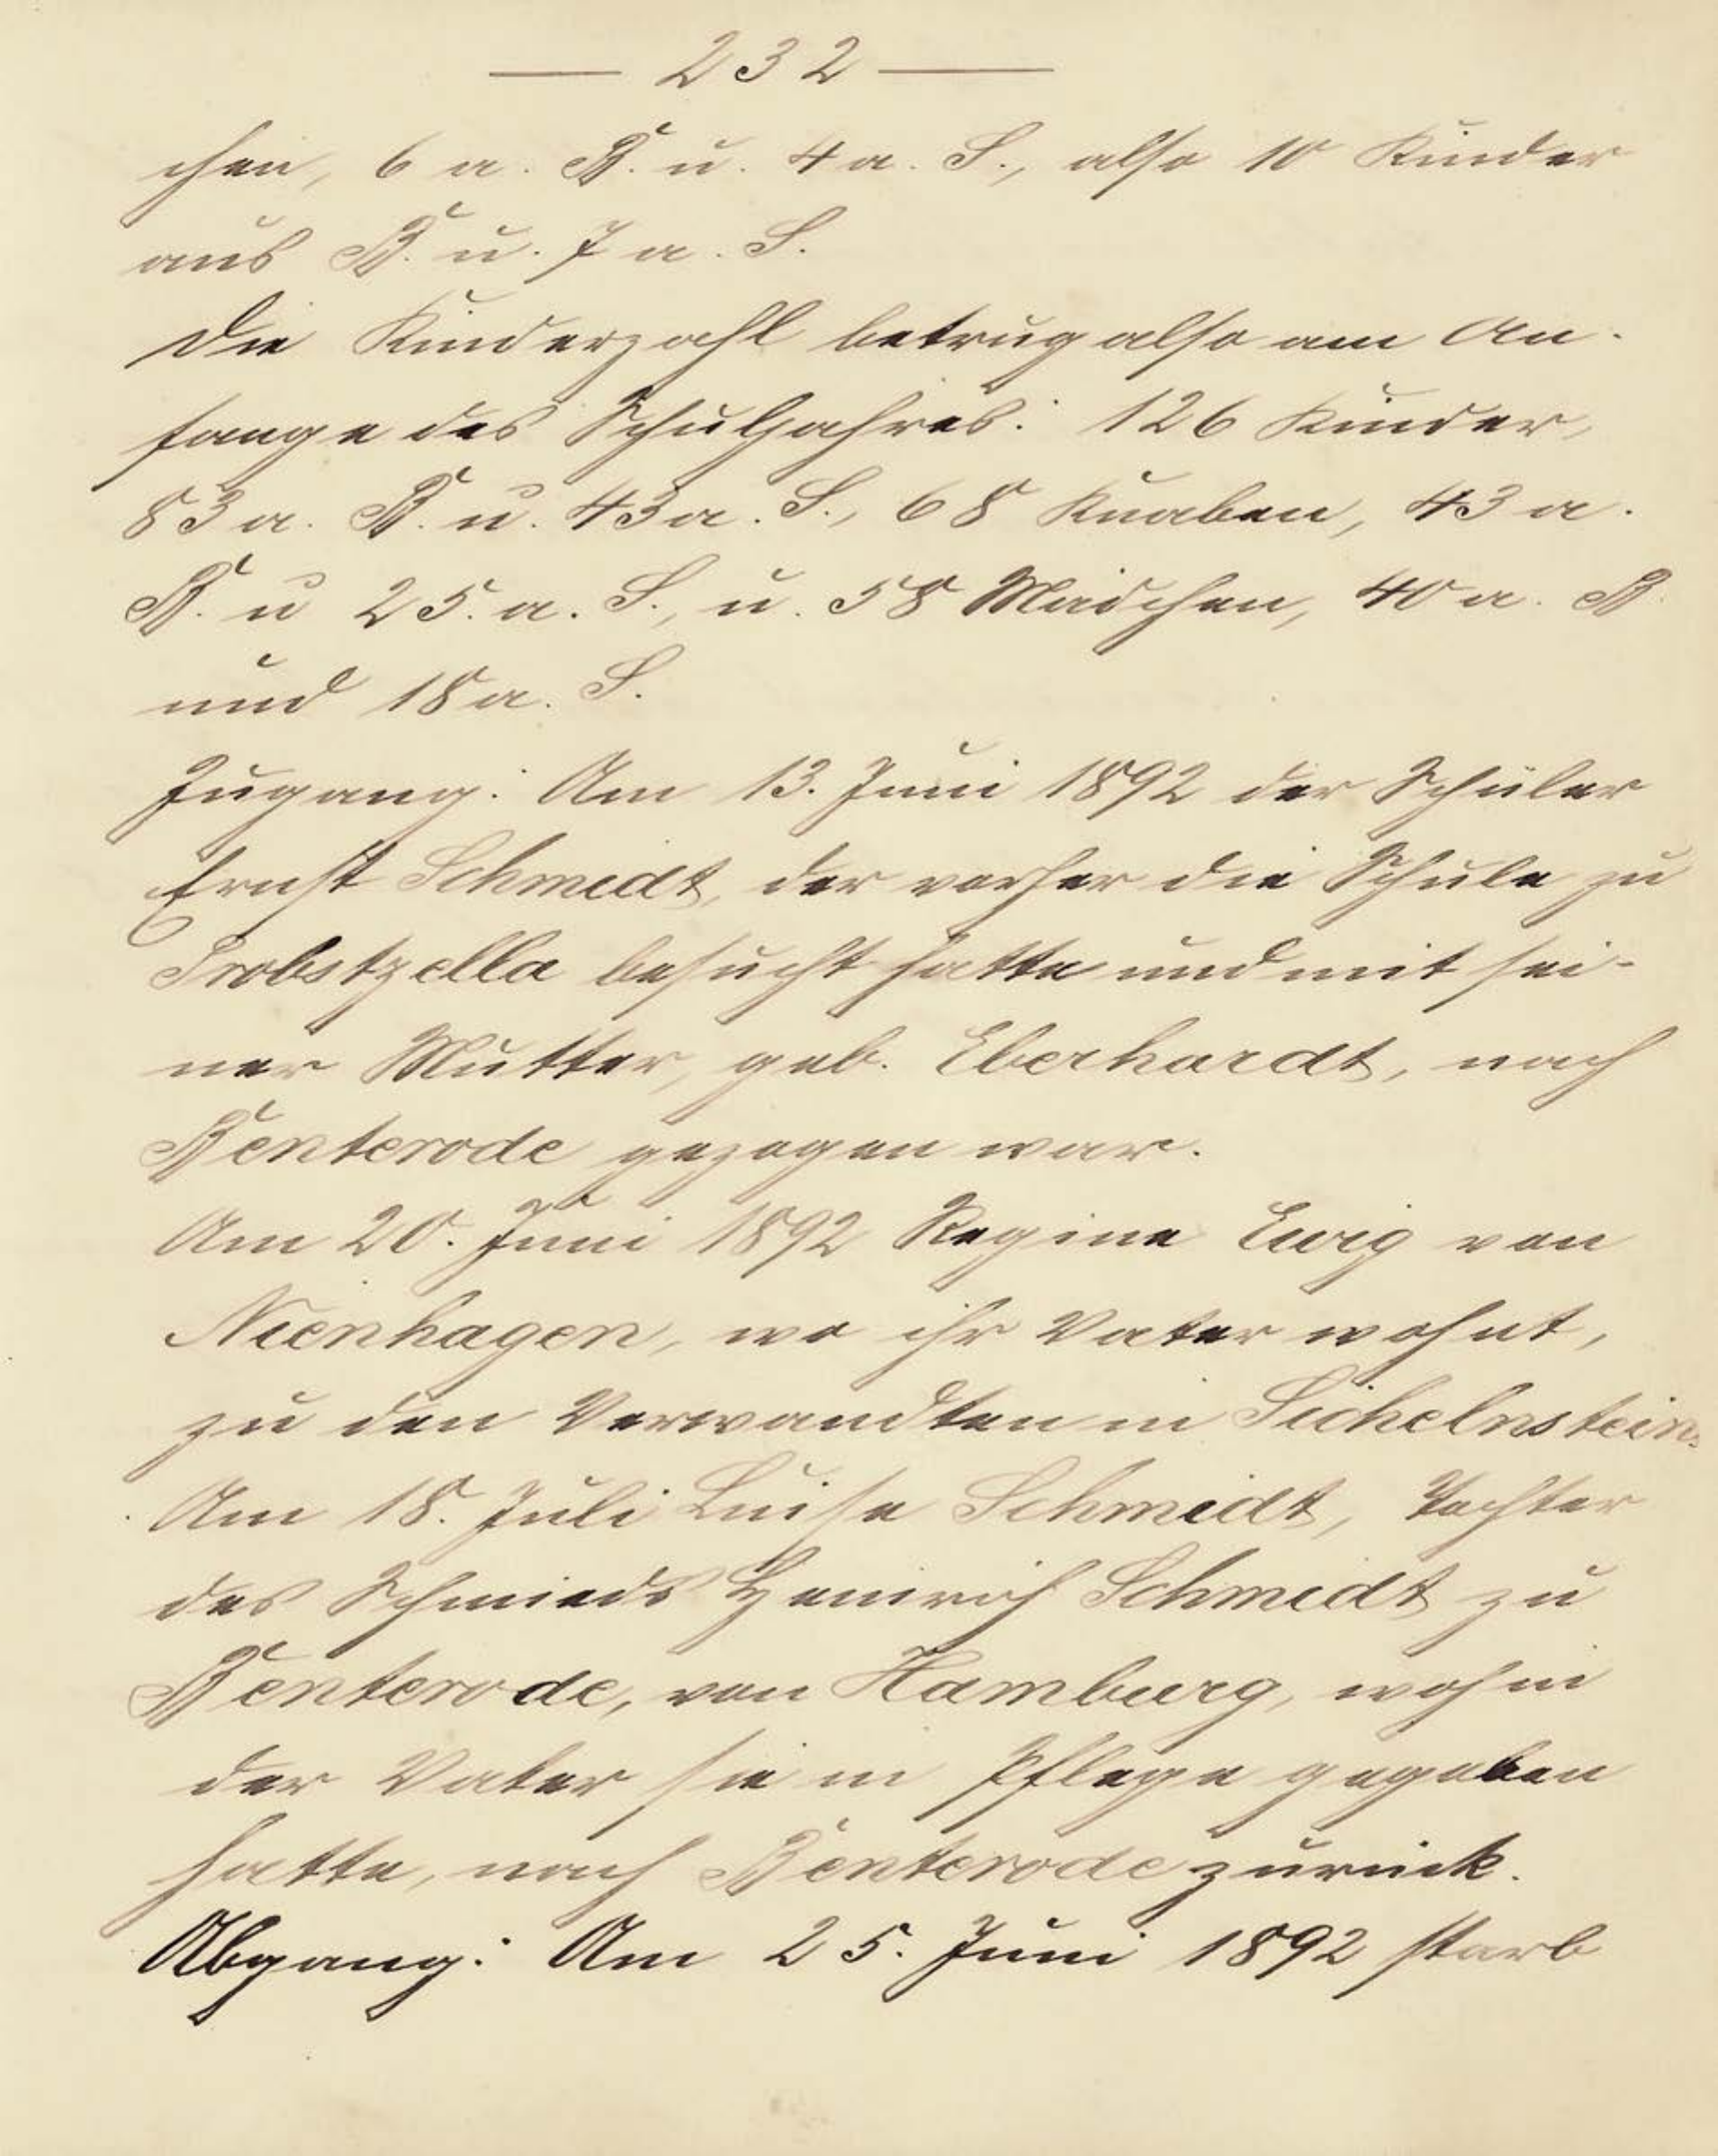 — 232 —
chen, 6 a. B. u. 4 a. S., also 10 Kinder
aus B. u. 7 a. S.
Die Kinderzahl betrug also am An-
fange des Schuljahres: 126 Kinder,
83 a. B. u. 43 a. S., 68 Knaben, 43 a.
B. u 25. a. S., u. 58 Mädchen, 40 a. B.
und 18 a. S.
Zugang: Am 13. Juni 1892 der Schüler
Ernst Schmidt, der vorher die Schule zu
Probstzella besucht hatte und mit sei-
ner Mutter, geb. Eberhardt, nach
Benterode gezogen war.
Am 20. Juni 1892 Regine Ewig von
Nienhagen, wo ihr Vater wohnt,
zu den Verwandten in Sichelnstein.
Am 18. Juli Luise Schmidt, Tochter
des Schmieds Heinrich Schmidt zu
Benterode, von Hamburg, wohin
der Vater sie in Pflege gegeben
hatte, nach Benterode zurück.
Abgang: Am 25. Juni 1892 starb